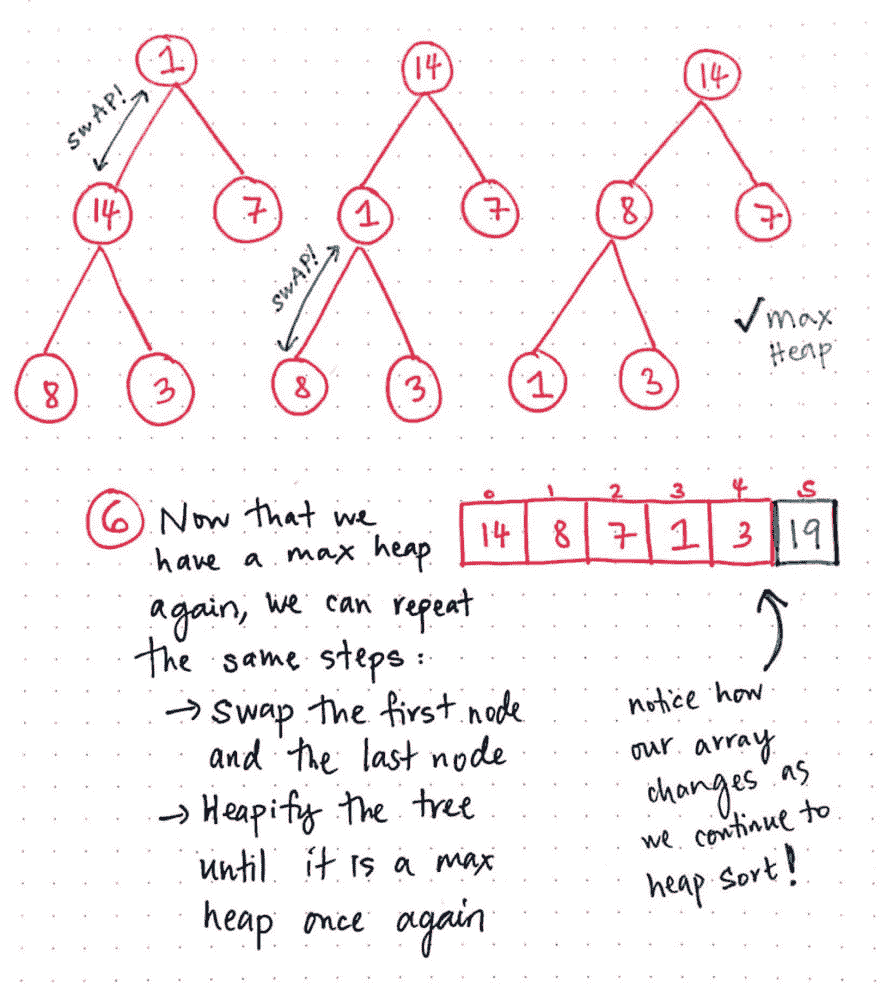 1 14 14
SWAP!
14 7 1 7 8 7
SWAP!
✓ max
Heap
8 3 8 3 1 3
6 Now that we
have a max heap
again, we can repeat
the same steps:
→ Swap the first node
and the last node
→ Heapify the tree
until it is a max
heap once again
0 1 2 3 4 5
14 8 7 1 3 19
notice how
our array
changes as
we continue to
heap sort!